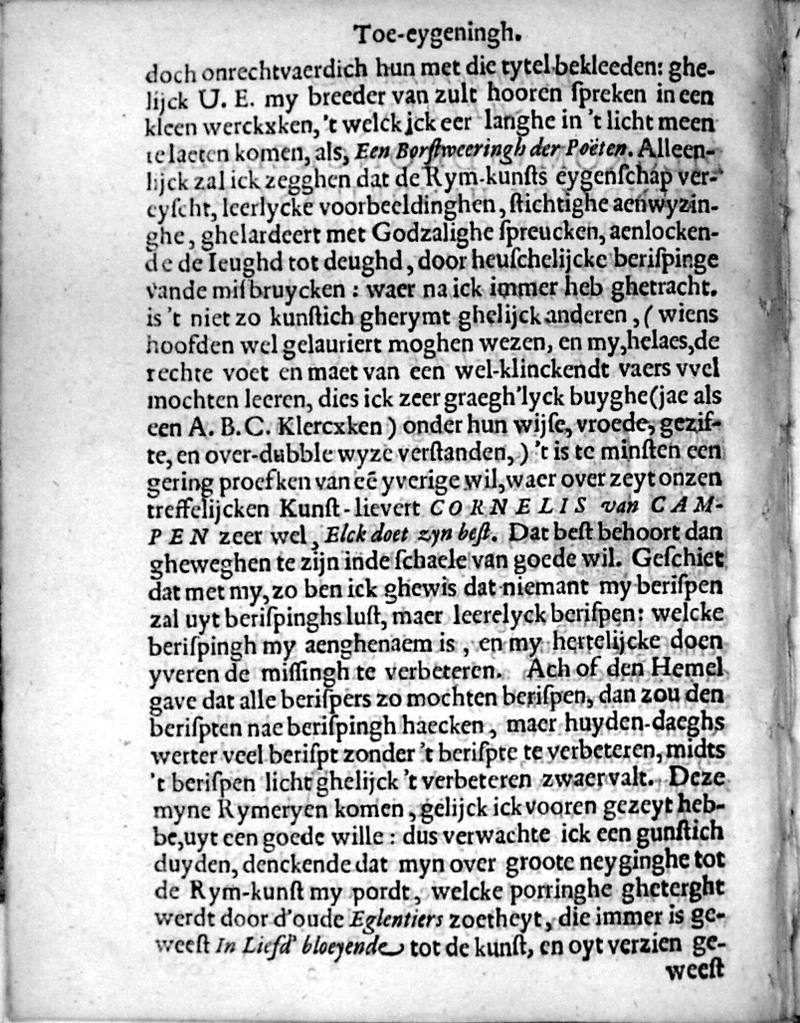 Toe-eygeningh.
doch onrechtvaerdich hun met die tytel bekleeden: ghe-
lijck U. E. my breeder van zult hooren ſpreken in een
kleen werckxken, 't welck jck eer langhe in 't licht meen
te laeten komen, als, Een Borſtweeringh der Poëten. Alleen-
lijck zal ick zegghen dat de Rym-kunſts eygenſchap ver-
eyſcht, leerlycke voorbeeldinghen, ſtichtighe aenwyzin-
ghe, ghelardeert met Godzalighe ſpreucken, aenlocken-
de de Ieughd tot deughd, door heuſchelijcke beriſpinge
vande miſbruycken : waer na ick immer heb ghetracht.
is 't niet zo kunſtich gherymt ghelijck anderen, (wiens
hoofden wel gelauriert moghen wezen, en my, helaes, de
rechte voet en maet van een wel-klinckendt vaers vvel
mochten leeren, dies ick zeer graegh'lyck buyghe (jae als
een A. B. C. Klercxken) onder hun wijſe, vroede, gezif-
te, en over-dubble wyze verſtanden,) 't is te minſten een
gering proefken van eē yverige wil, waer over zeyt onzen
treffelijcken Kunſt-lievert CORNELIS van CAM-
PEN zeer wel, Elck doet zyn beſt. Dat beſt behoort dan
gheweghen te zijn inde ſchaele van goede wil. Geſchiet
dat met my, zo ben ick ghewis dat niemant my beriſpen
zal uyt beriſpinghs luſt, maer leerelyck beriſpen: welcke
beriſpingh my aenghenaem is, en my hertelijcke doen
yveren de miſſingh te verbeteren. Ach of den Hemel
gave dat alle beriſpers zo mochten beriſpen, dan zou den
beriſpten nae beriſpingh haecken, maer huyden-daeghs
werter veel beriſpt zonder 't beriſpte te verbeteren, midts
't beriſpen licht ghelijck 't verbeteren zwaer valt. Deze
myne Rymeryen komen, gelijck ick vooren gezeyt heb-
be, uyt een goede wille : dus verwachte ick een gunſtich
duyden, denckende dat myn over groote neyginghe tot
de Rym-kunſt my pordt, welcke porringhe gheterght
werdt door d'oude Eglentiers zoetheyt, die immer is ge-
weeſt In Liefd' bloeyende tot de kunſt, en oyt verzien ge-
weeſt